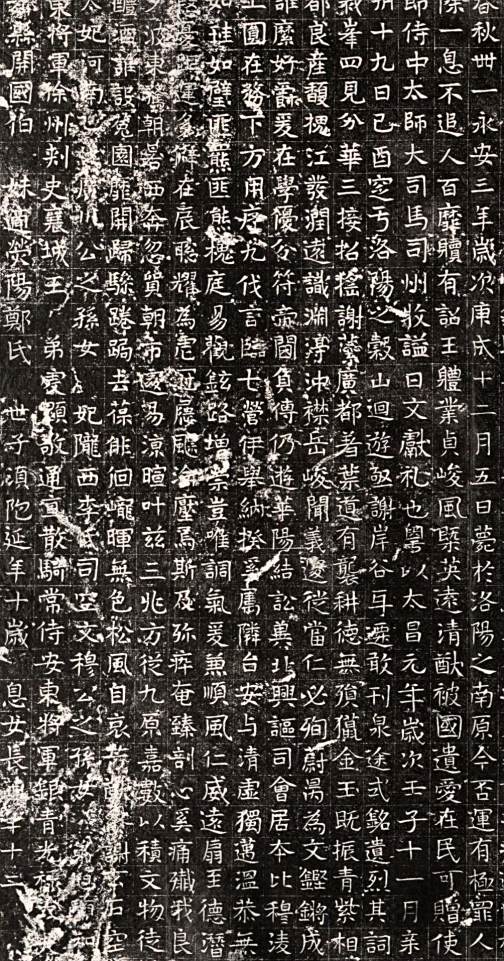 春秋卌一永安三年歲次庚戌十二月五日薨於洛陽之南原今否運有極罪人
除一息不追人百靡贖有詔王體業貞峻風槩英遠清猷被國遺愛在民可贈使
即侍中太師大司馬司州牧謚曰文獻礼也粵以太昌元年歲次壬子十一月
朔十九日己酉窆于洛陽之穀山迴遊亟謝岸谷每遷敢刊泉途式銘遺烈其詞
峯四見分華三接招搖謝蓂廣都著葉道有襲耕德無殞獵金玉既振青紫相
都良産馥槐江發潤遠識淵渟沖襟岳峻聞義遂從當仁必殉蔚昺為文鏗鏘成
誰縻好爵爰在學優分符赤閫負傅仍遊華陽結訟冀北興謳司會居夲比穆淩
圓在務下方用九代言臨七營伊舉納揆奚屬隣台安与清虛獨邁溫恭無
如珪如璧匪熊匪熊槐庭易觀鉉路增崇豈唯調氣爰兼順風仁威遠扇至德潛
運多難在辰聰耀為虐履慶焉斯及弥瘁奄臻剖心奚痛殲我良
夕波東驚朝晷西奔忽貿朝市遽易涼暄叶兹三兆方從九原嘉數以積文物徒
醴酒誰設兔園靡開歸驂踡跼去葆徘徊巘暉無色松風自哀謝石空
太妃河南公之孫女 妃隴西李氏司空文穆公之孫女
東將軍徐州刺史襄城王 弟虔顯敬通直散騎常侍安東將軍銀青光祿
縣開國伯 妹適滎陽鄭氏 世子須陁延年十歲 息女長年十三